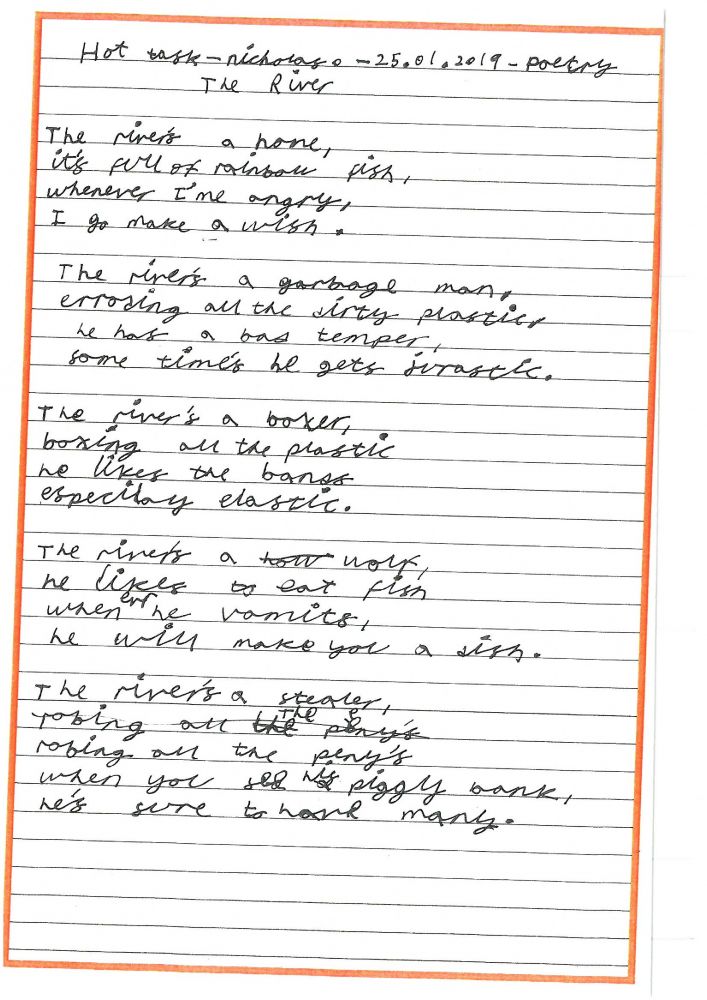 Hot task - nicholas o - 25.01.2019 - poetry
The River
The river's a home,
it's full of rainbow fish,
whenever I'me angry,
I go make a wish.
The river's a garbage man,
errosing all the dirty plastic,
he has a bad temper,
some time's he gets drastic.
The river's a boxer,
boxing all the plastic
he likes the bands
especilay elastic.
The river's a wolf,
he likes to eat fish
when ever he vomits,
he will make you a dish.
The river's a stealer,
robing all the peny's
robing all the peny's
when you see his piggy bank,
he's sure to have many.